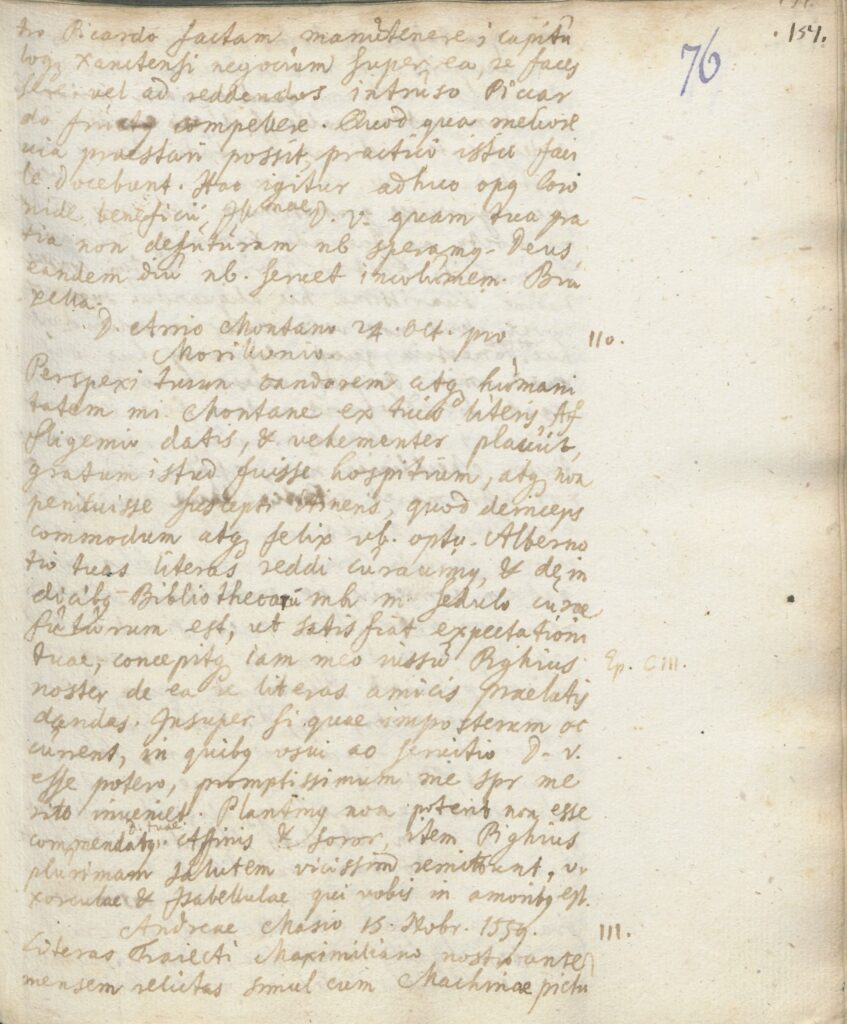 157.
76
tro Picardo factam manutenere, i capitu
loq Xanctensi negocium super ea re faces
sere vel ad reddendos intruso Piccar
do fructq compellere. Quod qua meliore
via praestari possit, practici istic faci
le docebunt. Hoc igitur adhuc opq Coro
nide beneficii, Illmae D. v. quam tua gra
tia non defuturam nb speramq. Deus
eandem diu nb. servet incolumem. Bru
xella.
D. Arrio Montano 24. Oct. pro 110.
Morillonio.
Perspexi tuum candorem atq humani
tatem mi Montane ex tuis literis Af
fligemio datis, & vehementer placuit,
gratum istud fuisse hospitium, atq non
penituisse suscepti itineris, quod deinceps
commodum atq felix vb. opto. Alberno
tio tuas literas reddi curavimq, & de in
dicibq Bibliothecarum mh m sedulo curae
futurum est, ut satisfiat expectationi
tuae, concepitq iam meo iussu Pighius Ep. CIII.
noster de ea re literas amicis Praelatis
dandas. Insuper si quae imposterum oc
current, in quibq usui ac servitio D. v.
esse potero, promptissimum me spr me
rito inveniet. Plantinq non poterit non esse
commendatq. D. tuae Affinis & soror, item Pighius
plurimam salutem vicissim remittunt, u
xorculae & Isabellulae qui vobis in amoribq est.
Andreae Masio 15. Nobr. 1559. 111.
Literas Traiecti Maximiliano nostro ante
mensem relictas simul cum Machinae pictu